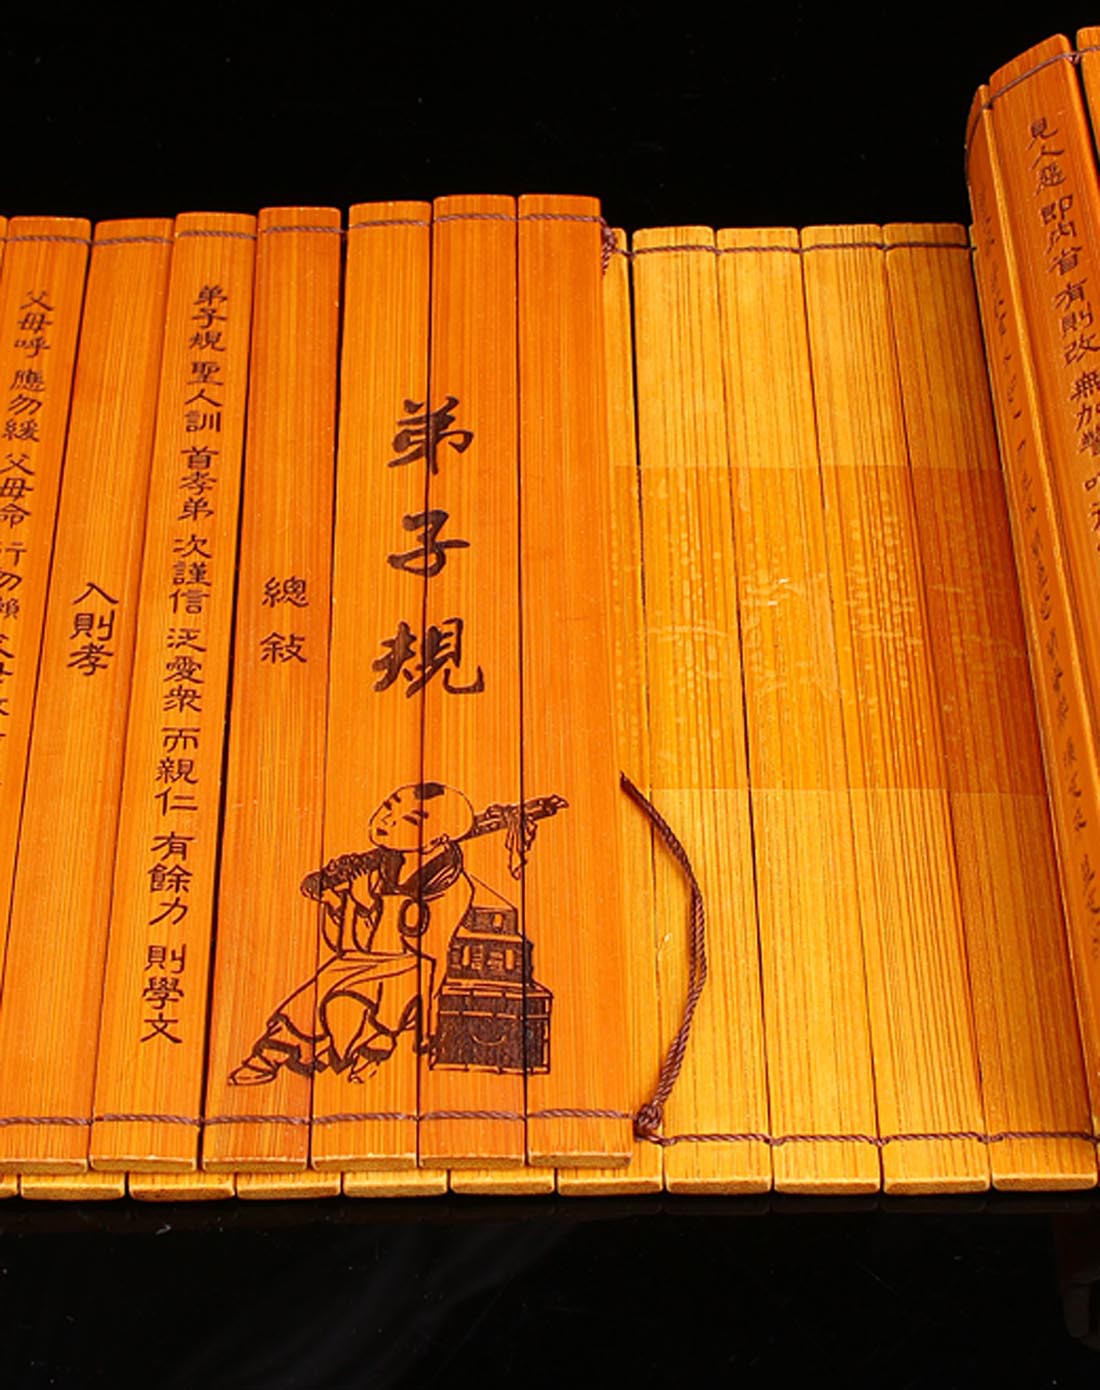 弟子規
總敍
弟子規 聖人訓 首孝弟 次謹信 泛愛衆 而親仁 有餘力 則學文
入則孝
父母呼 應勿緩 父母命 行勿懶
見人惡 即內省 有則改 無加警